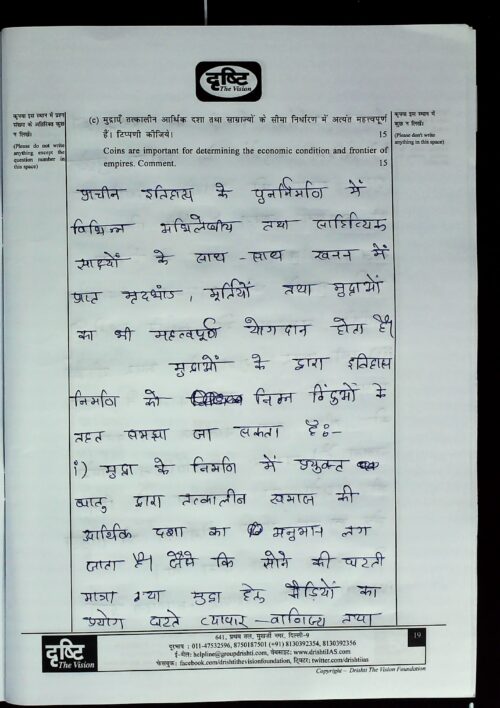 दृष्टि
The Vision
कृपया इस स्थान में प्रश्न
संख्या के अतिरिक्त कुछ
न लिखें।
(Please do not write
anything except the
question number in
this space)
(c) मुद्राएँ तत्कालीन आर्थिक दशा तथा साम्राज्यों के सीमा निर्धारण में अत्यंत महत्त्वपूर्ण
हैं। टिप्पणी कीजिये। 15
Coins are important for determining the economic condition and frontier of
empires. Comment. 15
कृपया इस स्थान में
कुछ न लिखें।
(Please don't write
anything in this space)
प्राचीन इतिहास के पुनर्निर्माण में
विभिन्न अभिलेखीय तथा साहित्यिक
साक्ष्यों के साथ-साथ खनन में
प्राप्त मृदभांड, मूर्तियों तथा मुद्राओं
का भी महत्वपूर्ण योगदान होता है।
मुद्राओं के द्वारा इतिहास
निर्माण को निम्न बिंदुओं के
तहत समझा जा सकता है:-
i) मुद्रा के निर्माण में प्रयुक्त
धातु द्वारा तत्कालीन समाज की
आर्थिक दशा का अनुमान लग
जाता है। जैसे कि सोने की घटती
मात्रा तथा मुद्रा हेतु कौड़ियों का
प्रयोग घटते व्यापार-वाणिज्य तथा
दृष्टि
The Vision
641, प्रथम तल, मुखर्जी नगर, दिल्ली-9
दूरभाष : 011-47532596, 8750187501 (+91) 8130392354, 8130392356
ई-मेल: helpline@groupdrishti.com, वेबसाइट: www.drishtiIAS.com
फेसबुक: facebook.com/drishtithevisionfoundation, ट्विटर: twitter.com/drishtiias
19
Copyright – Drishti The Vision Foundation